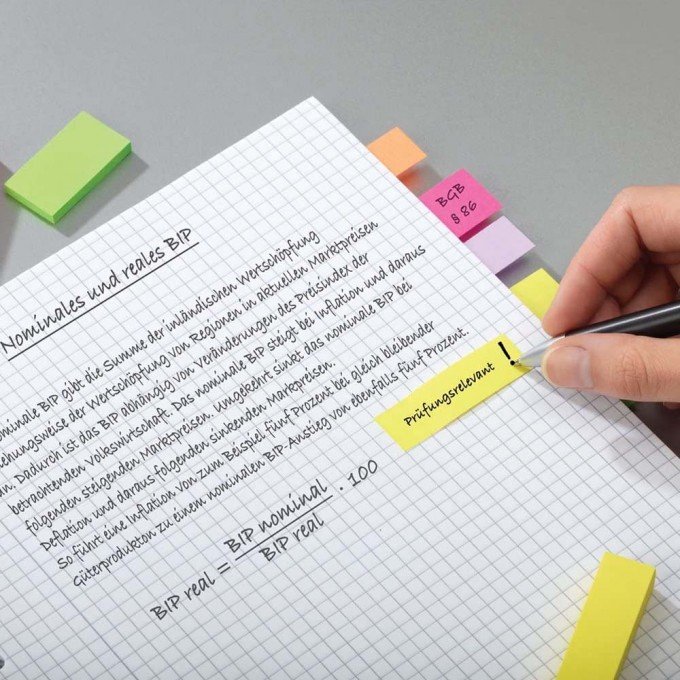 Nominales und reales BIP
ominale BIP gibt die Summe der inländischen Wertschöpfung
iehungsweise der Wertschöpfung von Regionen in aktuellen Marktpreisen
an. Dadurch ist das BIP abhängig von Veränderungen des Preisindex der
betrachtenden Volkswirtschaft. Das nominale BIP steigt bei Inflation und daraus
folgenden steigenden Marktpreisen. Umgekehrt sinkt das nominale BIP bei
Deflation und daraus folgenden sinkenden Marktpreisen.
So führt eine Inflation von zum Beispiel fünf Prozent bei gleich bleibender
Güterprodukton zu einem nominalen BIP-Anstieg von ebenfalls fünf Prozent.
BIP real = BIP nominal / BIP real . 100
Prüfungsrelevant !
BGB
§ 86